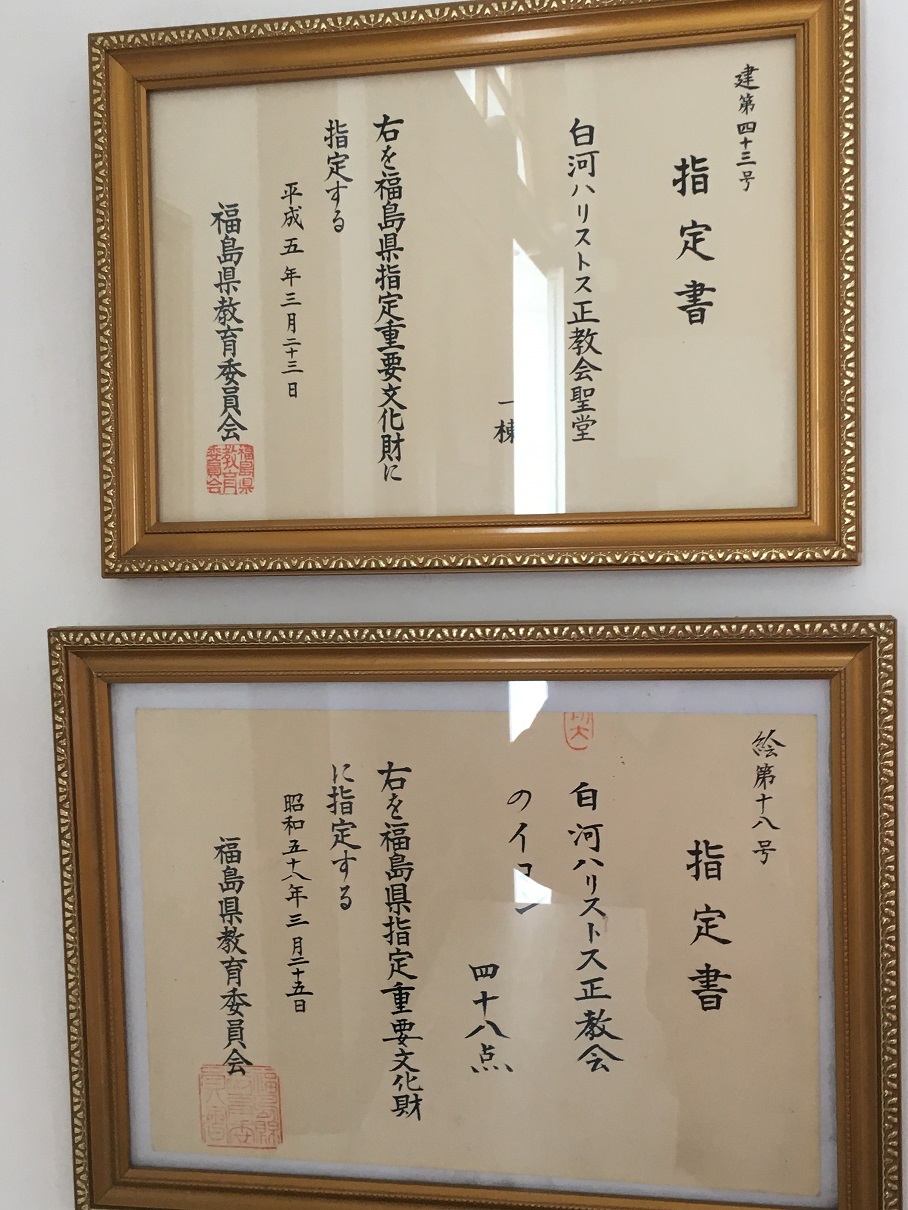 建第四十三号
指定書
白河ハリストス正教会聖堂
一棟
右を福島県指定重要文化財に
指定する
平成五年三月二十三日
福島県教育委員会
福島県
教育
委員会
絵第十八号
指定書
白河ハリストス正教会
のイコン
四十八点
右を福島県指定重要文化財
に指定する
昭和五十八年三月二十五日
福島県教育委員会